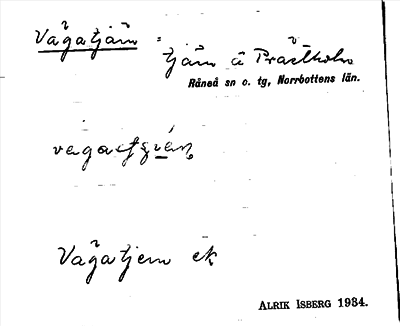 Vågatjärn :
tjärn å Prästholm
Råneå sn o. tg, Norrbottens län.
Vågatjern ek
ALRIK ISBERG 1934.